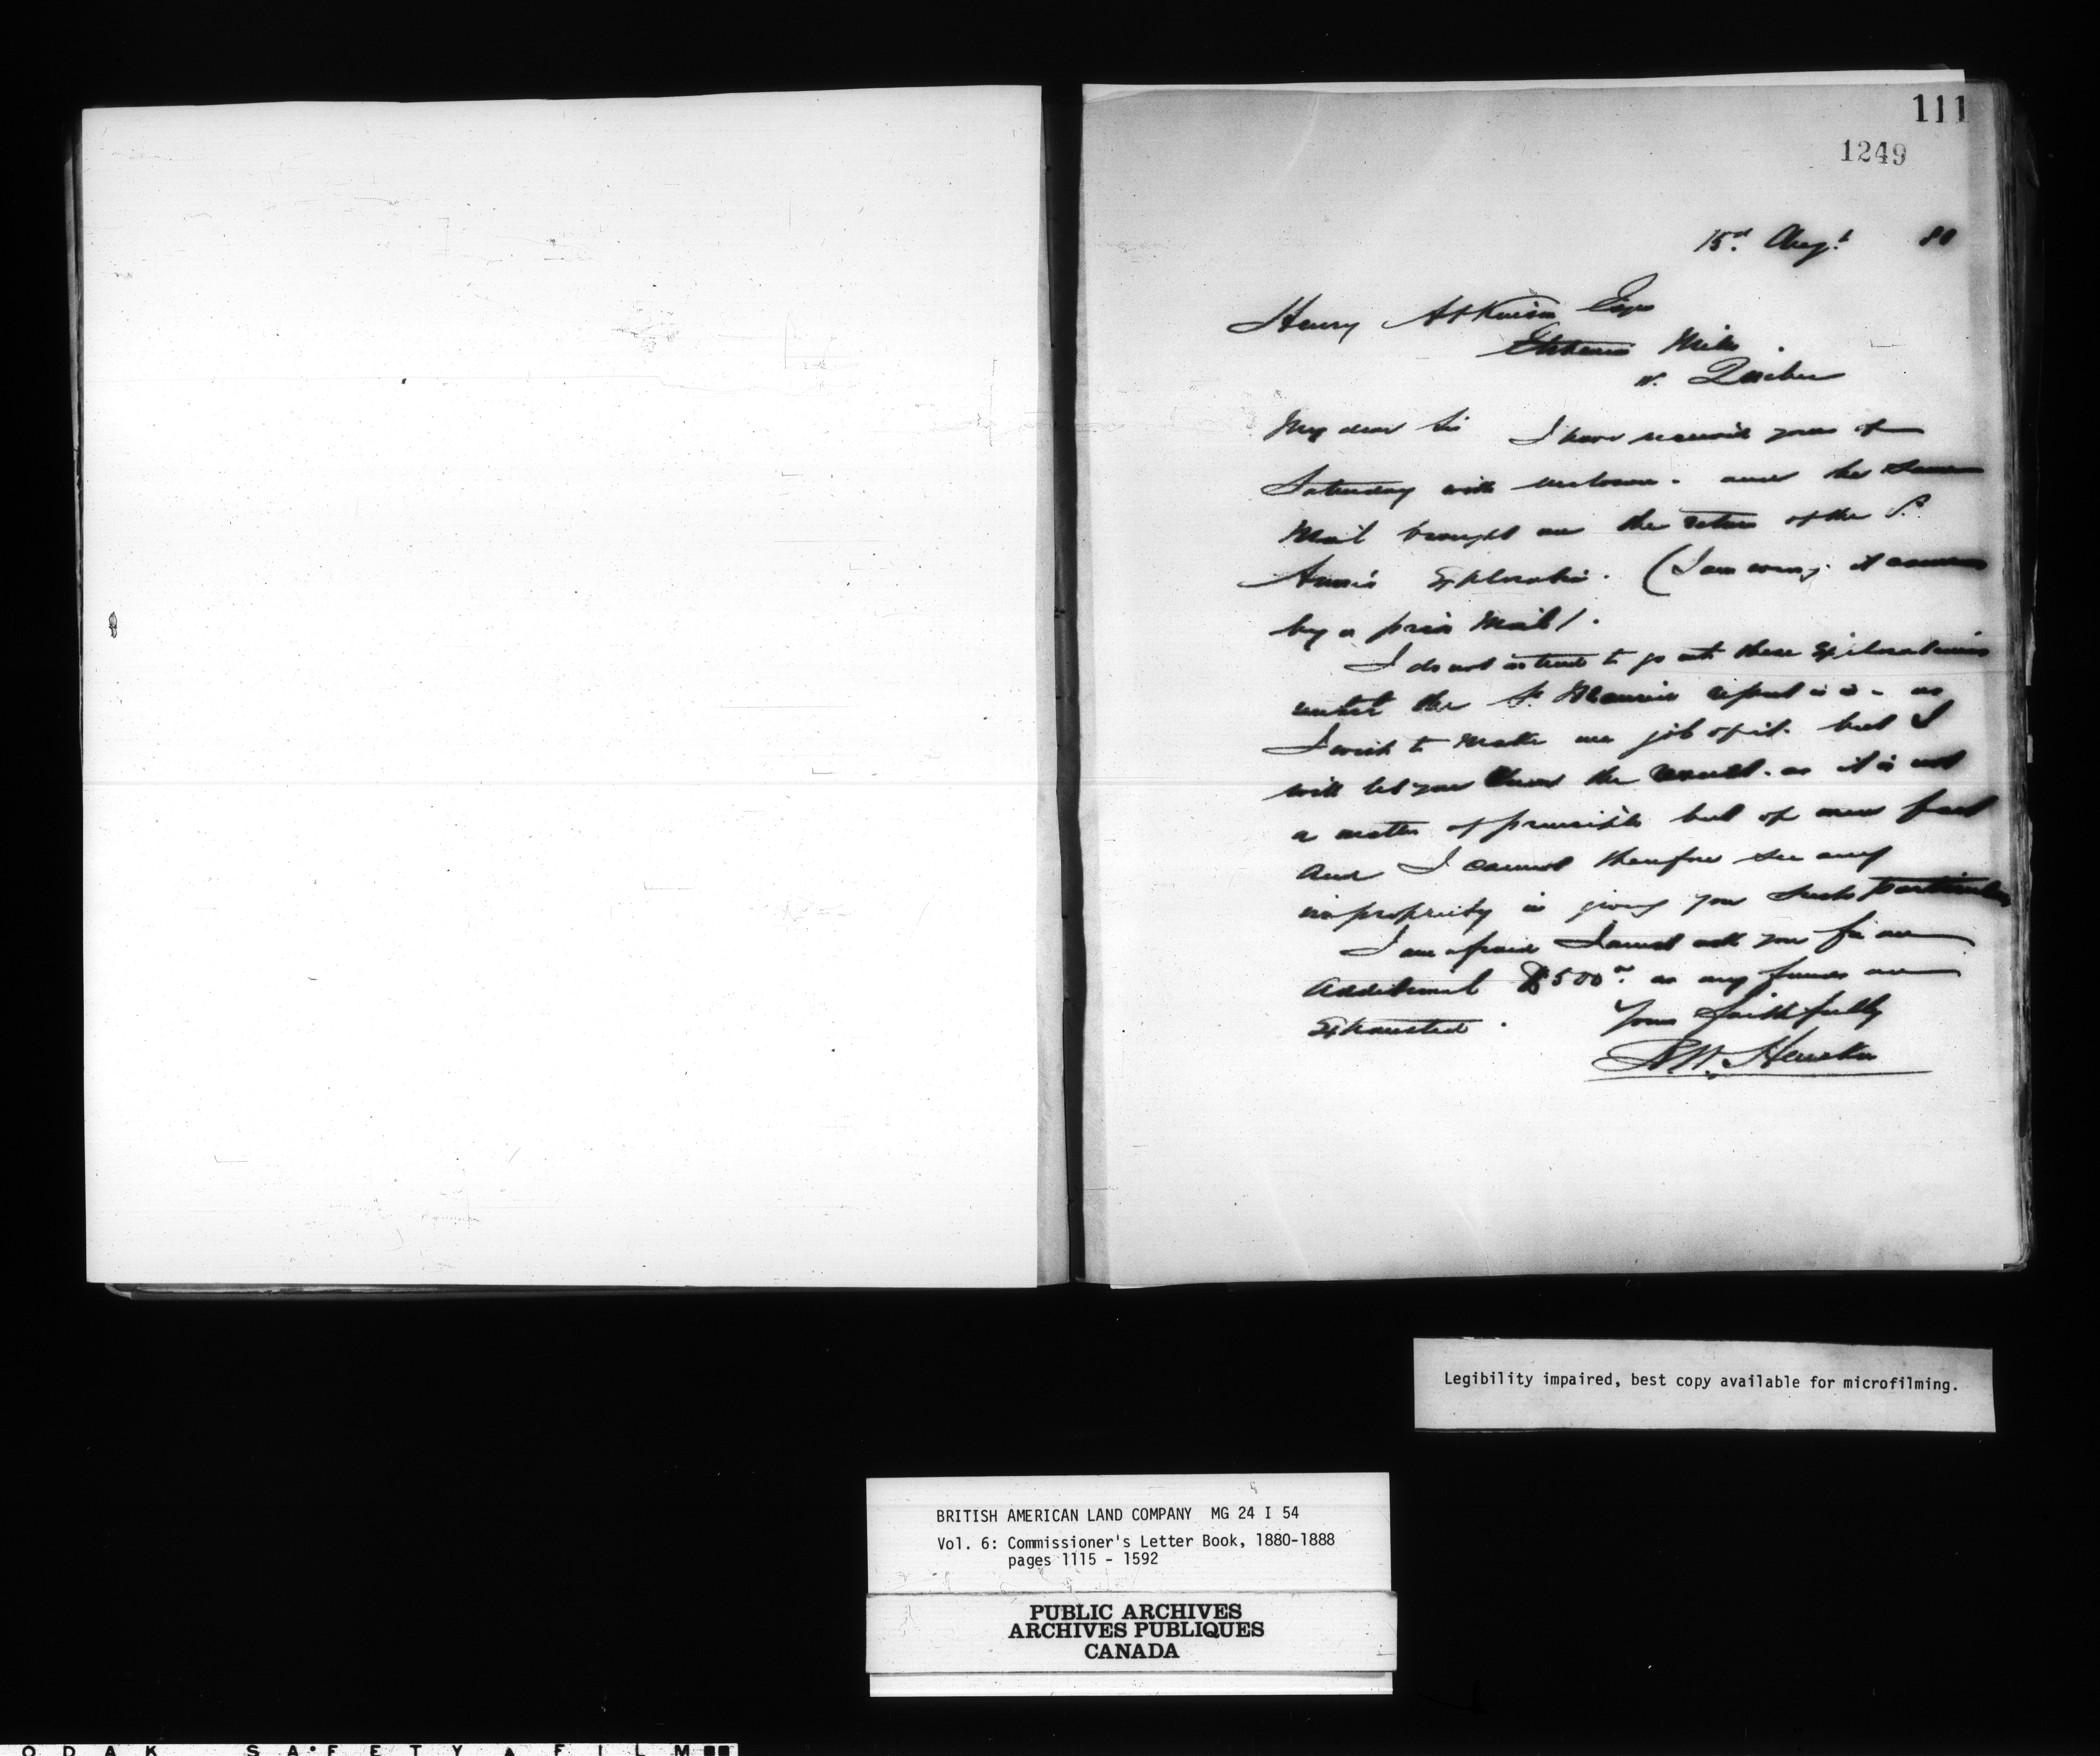 111
1249
15th Augt 80
Henry Atkinson Esqr
Etchemin Mills
nr. Quebec
My dear Sir I have received yours of
Saturday with enclosure. and the same
Mail brought me the return of the St.
Anne's Exploration. (I am wrong. it came
by a prior Mail).
I do not intend to go into these Explorations
until the St Maurice report is in - as
I wish to make one job of it. but I
will let you know the result. as it is not
a matter of principle but of mere fact
and I cannot therefore see any
impropriety in giving you such particulars
I am afraid I must ask you for an
additional $500 as my funds are
Exhausted. Yours faithfully
R.W. Heneker
Legibility impaired, best copy available for microfilming.
BRITISH AMERICAN LAND COMPANY MG 24 I 54
Vol. 6: Commissioner's Letter Book, 1880-1888
pages 1115 - 1592
PUBLIC ARCHIVES
ARCHIVES PUBLIQUES
CANADA
ODAK SAFETY FILM